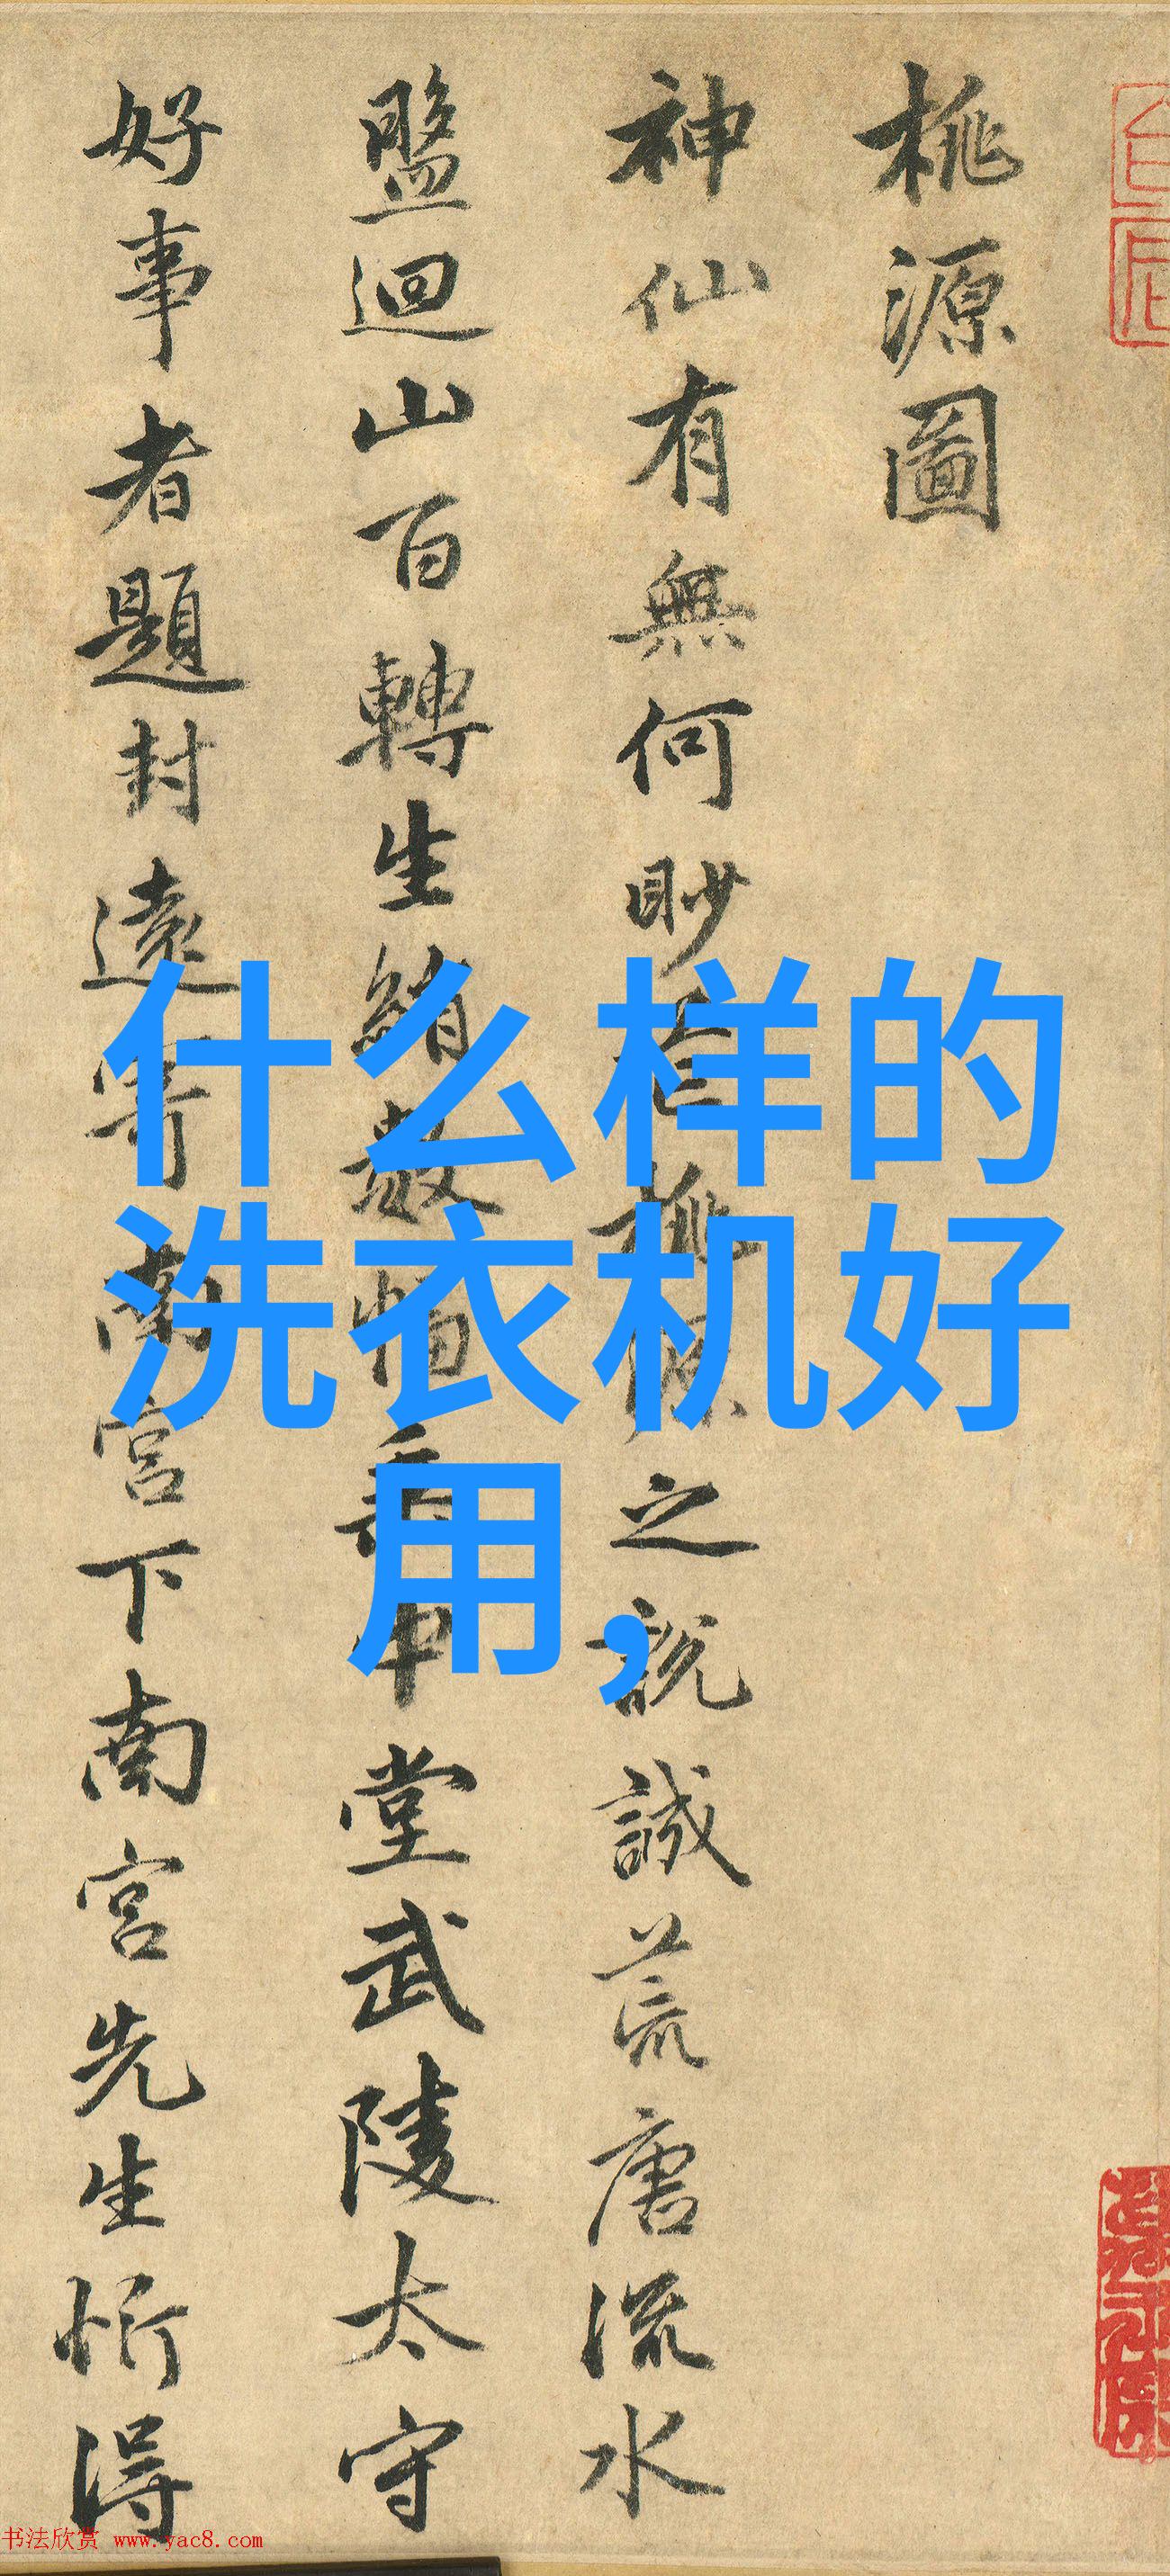 桃源圖
神仙有無何眇芒桃源之説誠荒唐流水
盤迴山百轉生綃數幅垂中堂武陵太守
好事者題封遠寄南宮下南宮先生忻得
什么样的
洗衣机好
用,
书法欣赏 www.yac8.com